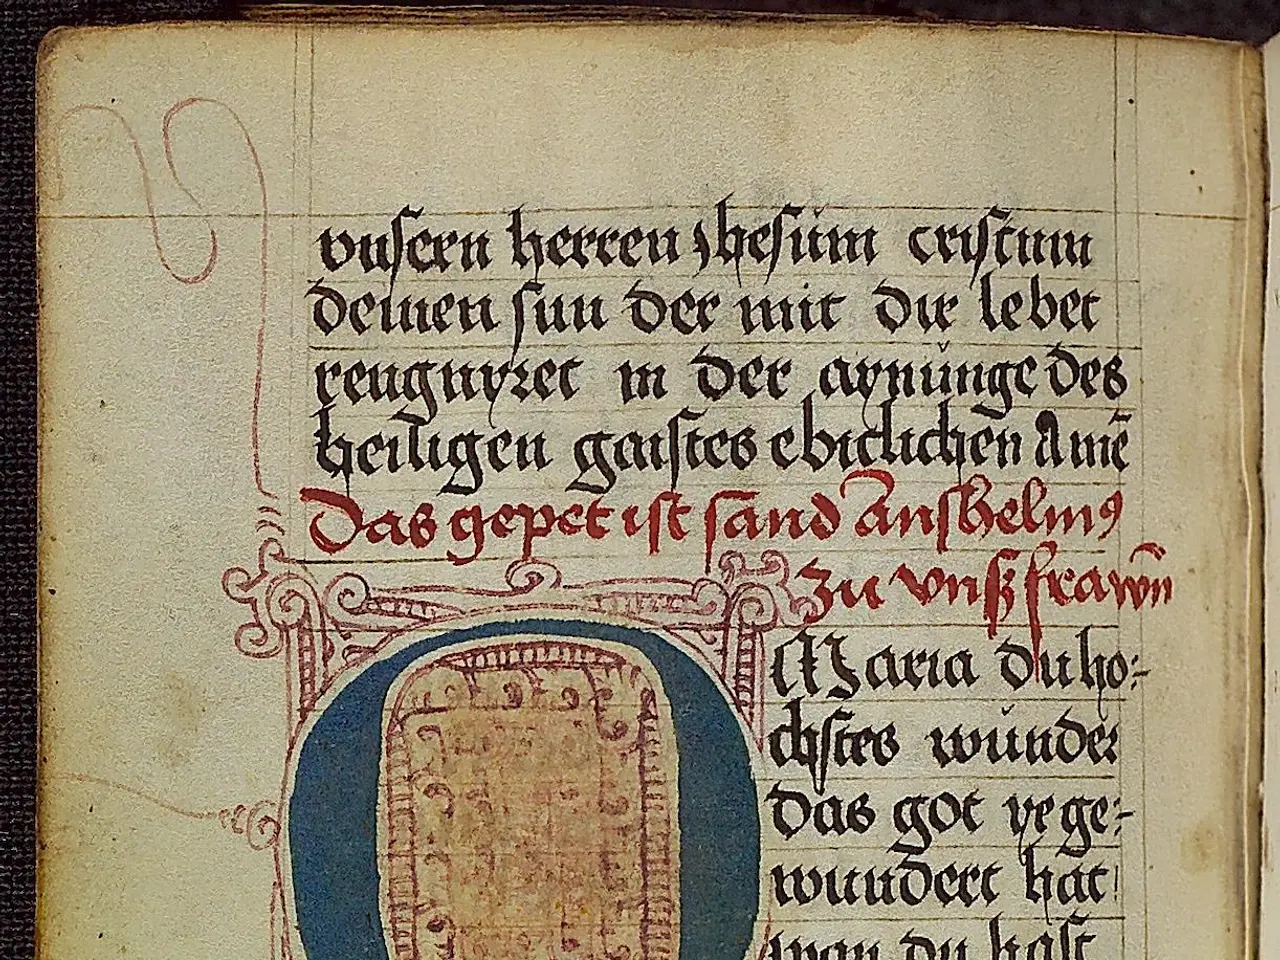 vnsern herren Jhesům cristum
deinen sun der mit dir lebet
reugnyret in der aynůnge des
heiligen gaistes ebiclichen Amē
Das gepet ist sand Anshelmꝰ
zu vnsß frawn̄
O Maria du ho-
chstes wůnder
das got ye ge-
wundert hat
wan du hast